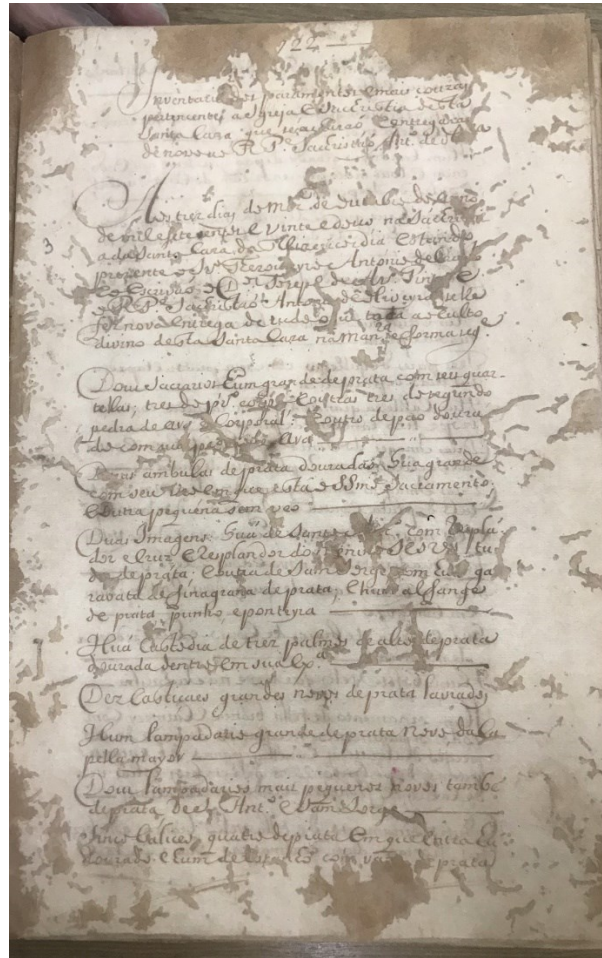 122
Inventario dos paramentos e mais couzas
pertencentes a Igreja e Sacristia desta
Santa Caza que se acharaõ
de novo ao R. P.e Sacristaõ Ant.o de
Aos tres dias do mes de
de mil e sete centos e vinte e dous na Sacristia
da Santa Caza da Mizericordia estando
3
prezente o Antonio de
e o Escrivaõ
e o R. P.e Sacristaõ Antonio de
fez nova entrega de tudo o ao culto
divino desta Santa Caza na man.ra e forma seg.e
Dous Sacrarios hum grande de prata com seus quar-
telas, tres de e outras tres de segundo
pedra de e Corporal. e outro de pao doura
do com sua pedra de Ara
Duas ambulas de prata douradas huã grande
com seu veo em que está o SS.mo Sacramento.
e outra pequena sem veo
Duas Imagens huã de Santo Ant.o com Resplan
dor e Cruz e Resplandor do Menino tu
do de prata; e outra de Sam Jorge com huã ga
ravata de finagrana de prata, e hum alfange
de prata, punho e ponteyra
Huã Custodia de tres palmos de alto de prata
dourada dentro em sua
Dez Castiçaes grandes novos de prata lavrados
Hum lampadario grande de prata novo da Ca
pella mayor
Dous lampadarios mais piquenos novos tambe
de prata Ant.o e Sam Jorge
Sinco Calices, quatro de prata em que entra hu
dourado e hum de com de prata